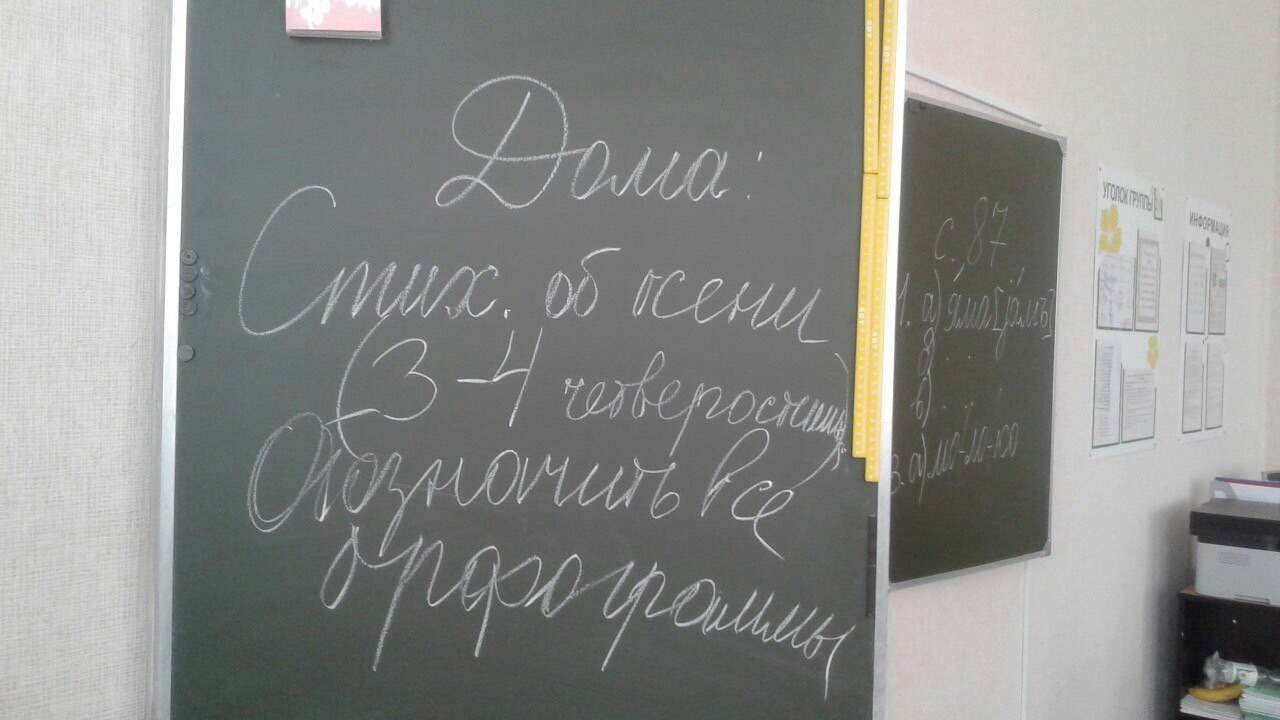 Дома:
Стих. об осени
(3-4 четверостишия)
Обозначить все
орфограммы
с. 87
1. а) яма [јамъ]
б)
в)
3. а) мо-ло-ко
УГОЛОК ГРУППЫ
ИНФОРМАЦИЯ